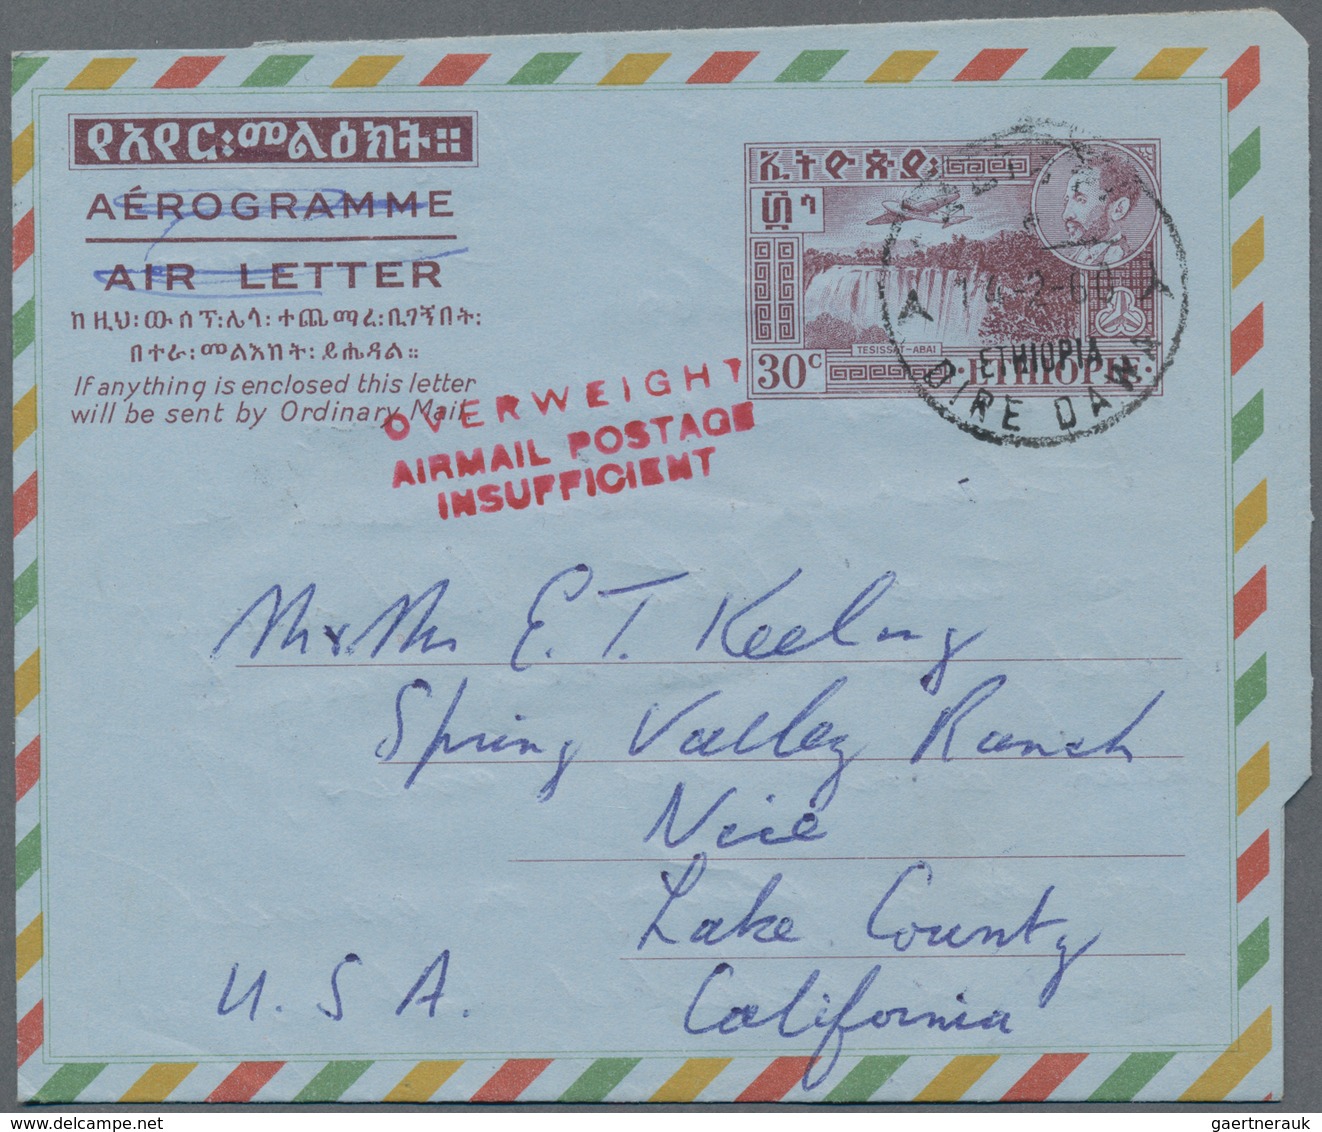 የአየር፡መልዕክት።
AÉROGRAMME
AIR LETTER
ከዚህ፡ውሰጥ፡ሌላ፡ተጨማሪ፡ቢገኝበት፡
በተራ፡መልእክት፡ይሔዳል።
If anything is enclosed this letter
will be sent by Ordinary Mail
ኢትዮጵያ፡
፴ ሳ
TESISSAT-ABAI
30c ·ETHIOPIA·
14-2-60
ETHIOPIA
DIRE DAWA
OVERWEIGHT
AIRMAIL POSTAGE
INSUFFICIENT
Mr & Mrs E. T. Keeling
Spring Valley Ranch
Nice
Lake County
U. S. A. California
gaertnerauk